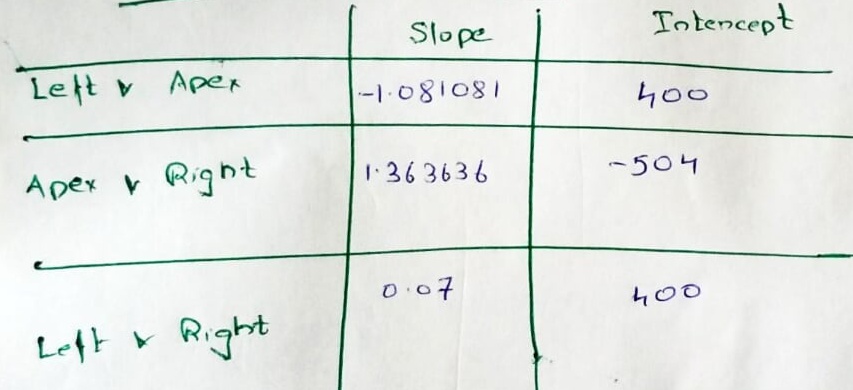 Slope Intencept
Left v Apex -1.081081 400
Apex v Right 1.363636 -504
Left v Right 0.07 400